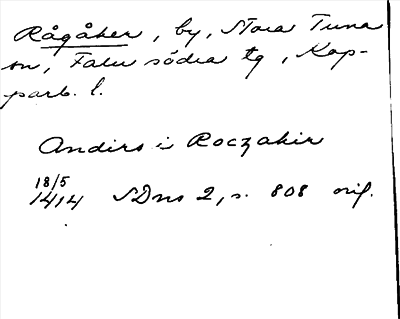 Rågåker, by, Stora Tuna
sn, Falu södra tg, Kop-
parb. l.
Anders i Roczakir
18/5
1414 SDns 2, s. 808 orig.